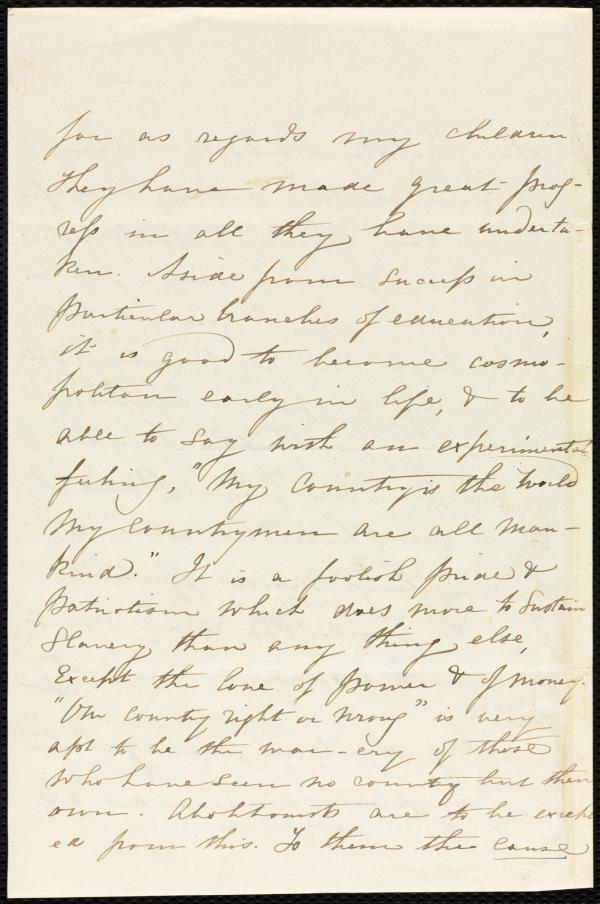 far as regards my children
they have made great prog-
ress in all they have underta-
ken. Aside from success in
particular branches of education,
it is good to become cosmo-
politan early in life, & to be
able to say with an experimental
feeling, "My Country is the World
My Countrymen are all Man-
kind." It is a foolish pride &
patriotism which does more to sustain
Slavery than any thing else,
Except the love of power & of money.
"Our country right or wrong" is very
apt to be the war-cry of those
who have seen no country but their
own. Abolitionists are to be except
ed from this. To them the cause